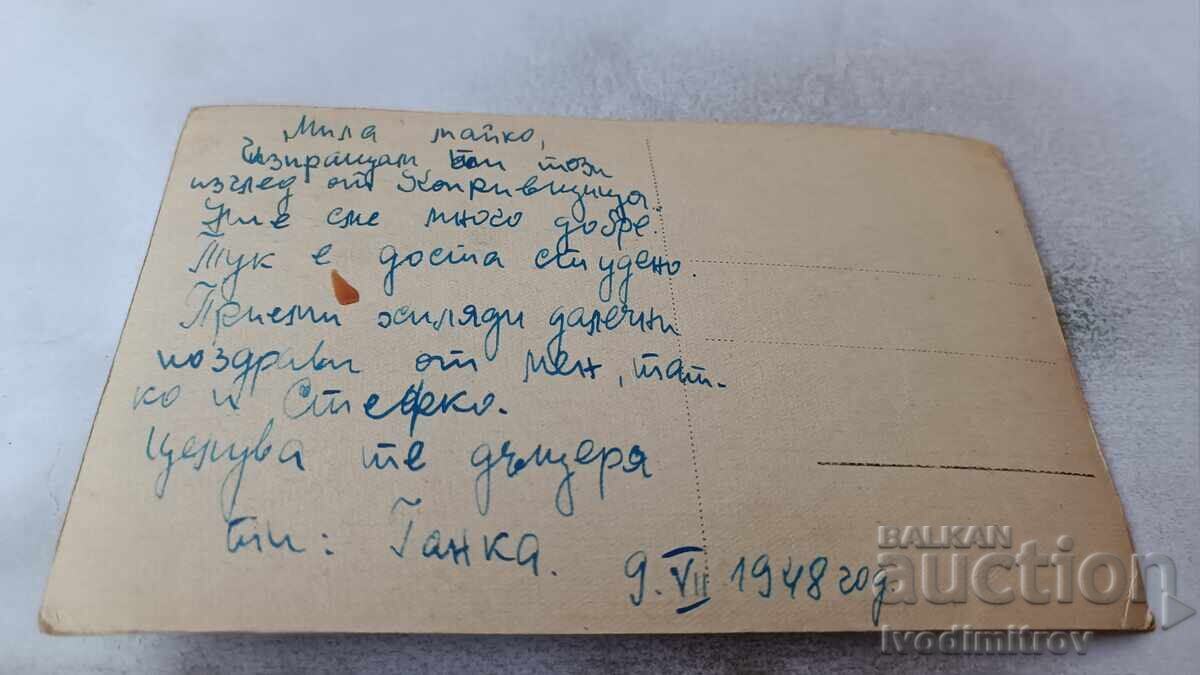 Мила майко,
Изпращам ти този
изглед от Копривщица.
Ние сме много добре.
Тук е доста студено.
Приеми хиляди далечни
поздрави от мен, тат-
ко и Стефко.
Целува те дъщеря
ти: Ганка.
9.VII 1948 год.
BALKAN
auction
Ivodimitrov